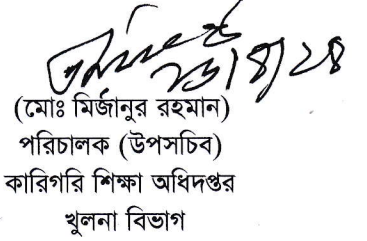 (মোঃ মির্জানুর রহমান)
পরিচালক (উপসচিব)
কারিগরি শিক্ষা অধিদপ্তর
খুলনা বিভাগ